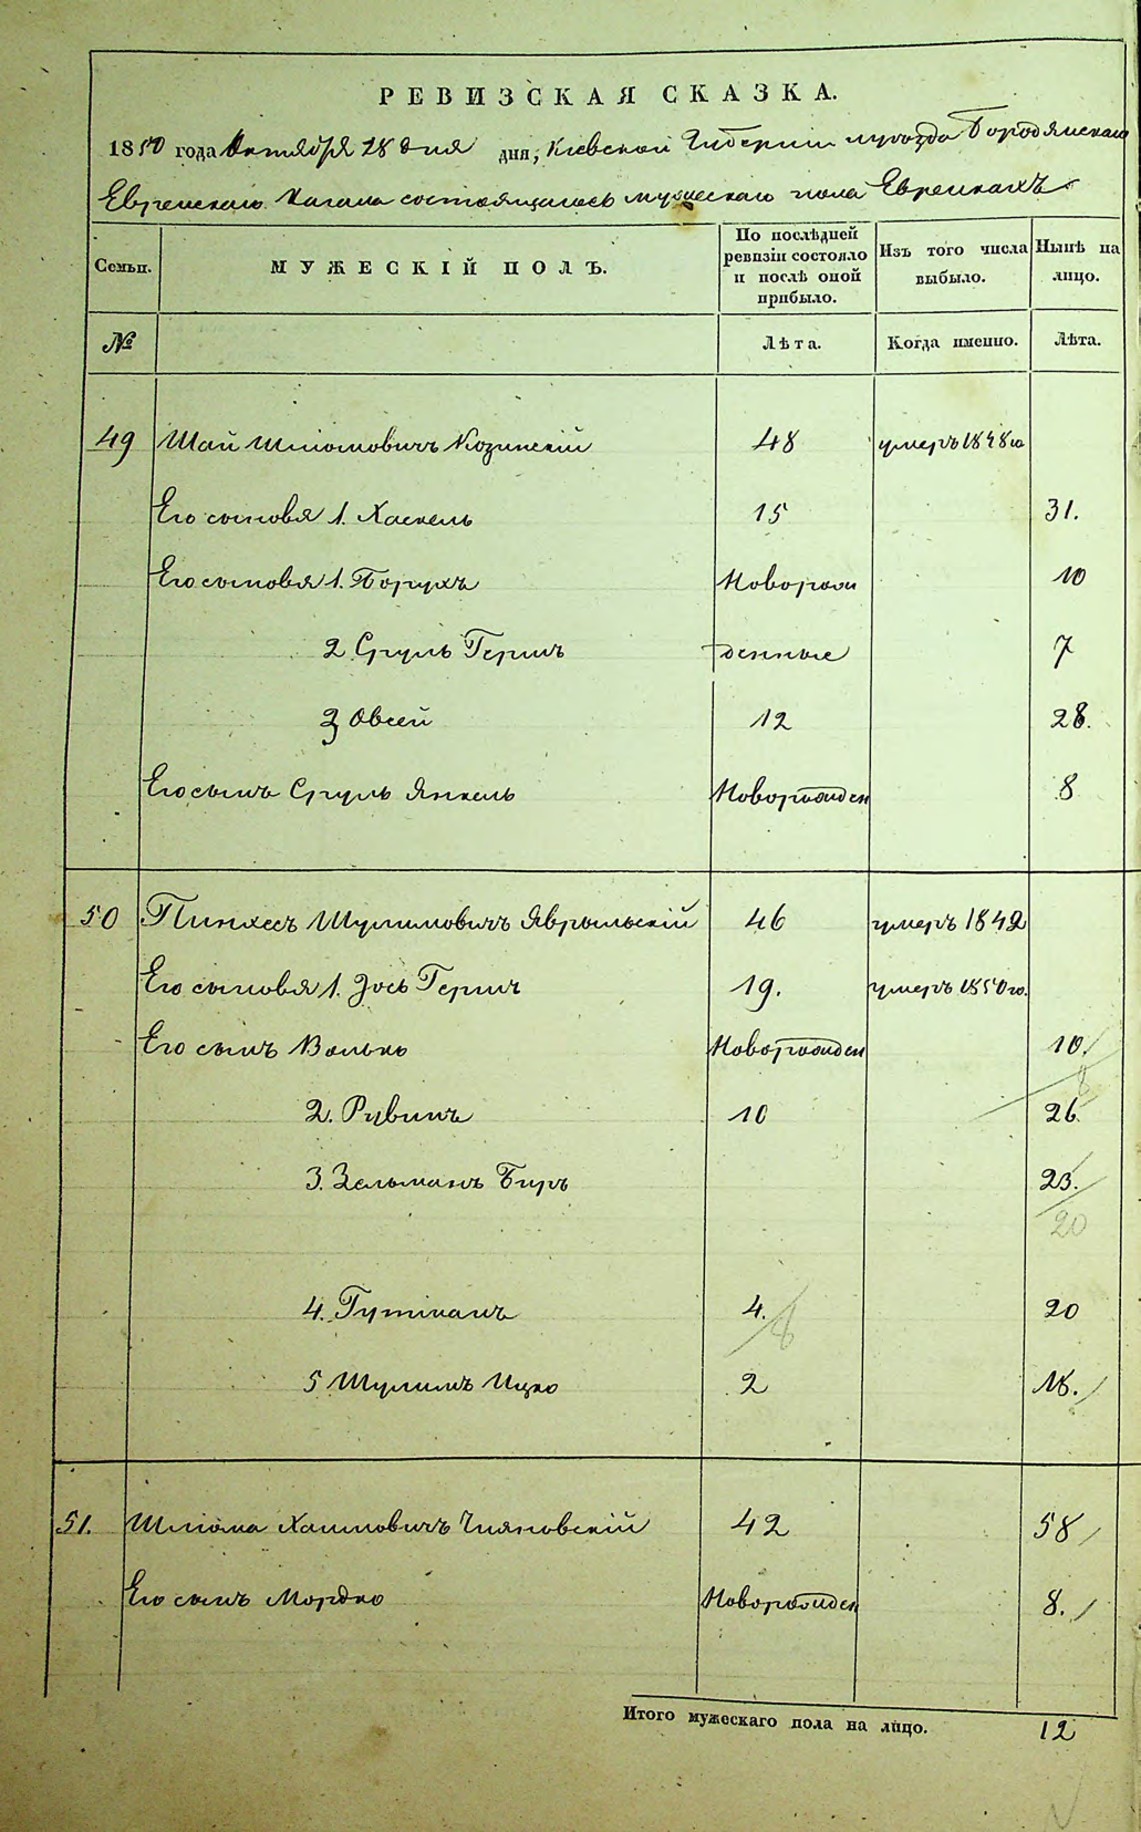 РЕВИЗСКАЯ СКАЗКА.
1850 года Октября 28 дня дня, Кіевской Губерніи Бородянскаго
Еврейскаго Кагала состоящагося мужескаго пола Евреихахъ
Семьи.
МУЖЕСКІЙ ПОЛЪ.
По послѣдней
ревизіи состояло
и послѣ оной
прибыло.
Изъ того числа
выбыло.
Нынѣ на
лицо.
№
Лѣта.
Когда именно.
Лѣта.
49 Шай Шліомовичъ Козинскій 48 умеръ 1848го
Его сыновья 1. Хаскель 15 31.
Его сыновья 1. Борухъ Новорож 10
2 Сруль Гершъ денные 7
3 Овсей 12 28.
Его сынъ Сруль Янкель Новорожден 8
50 Пинхесъ Шулимовичъ 46 умеръ 1842
Его сыновья 1. Зось Гершъ 19. умеръ 1850го.
Его сынъ Волько Новорожден 10.
8
2. Рувинъ 10 26.
3. Зельманъ Беръ 23.
20
4. Гутманъ 4. 20
8
5 Шулимъ Ицко 2 18.
51. Шліома Хаимовичъ 42 58
Его сынъ Мордко Новорожден 8.
Итого мужескаго пола на лицо. 12